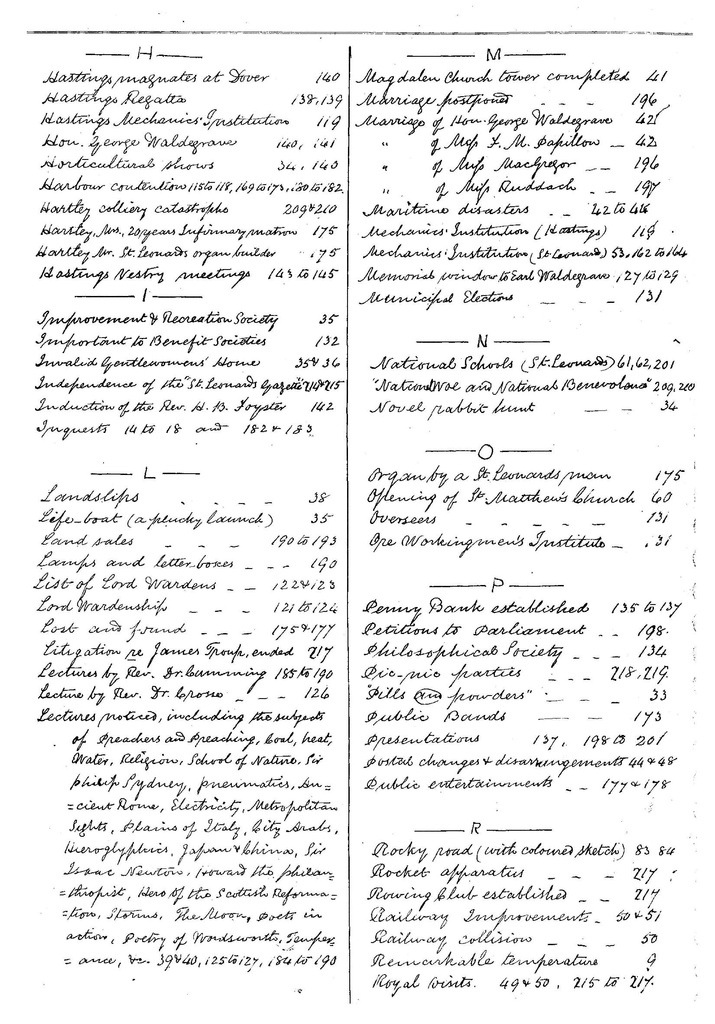 H
Hastings magnates at Dover 140
Hastings Regatta 138, 139
Hastings Mechanics' Institution 119
Hon. George Waldegrave 140, 141
Horticultural shows 34, 140
Harbour contention 115 to 118, 169 to 173, 180 to 182
Hartley colliery catastrophe 209 & 210
Hartley, Mrs, 20 years Infirmary matron 175
Hartley Mr. St. Leonards organ builder 175
Hastings Vestry meetings 143 to 145
I
Improvement & Recreation Society 35
Important to Benefit Societies 132
Invalid Gentlewomens' Home 35 & 36
Independence of the "St. Leonards Gazette" 214 & 215
Induction of the Rev. H. B. Foyster 142
Inquests 14 to 18 and 182 & 183
L
Landslips 38
Life-boat (a plucky launch) 35
Land sales 190 to 193
Lamps and letter-boxes 190
List of Lord Wardens 122 & 123
Lord Wardenship 121 to 124
Lost and found 175 & 177
Litigation re James Troup, ended 217
Lectures by Rev. Dr. Cumming 185 to 190
Lecture by Rev. Dr. Crosse 126
Lectures noticed, including the subjects
of Preachers and Preaching, Coal, heat,
Water, Religion, School of Nature, Sir
Philip Sydney, pneumatics, An=
=cient Rome, Electricity, Metropolitan
Sights, Plains of Italy, City Arabs,
Hieroglyphics, Japan & China, Sir
Isaac Newton, Howard the philan=
=thropist, Hero of the Scottish Reforma=
=tion, Storms, The Moon, Poets in
action, Poetry of Wordsworth, Temper=
=ance, &c. 39 & 40, 125 to 127, 184 to 190
M
Magdalen Church tower completed 41
Marriage postponed 196
Marriage of Hon. George Waldegrave 42
" of Miss F. M. Papillon 42
" of Miss MacGregor 196
" of Miss Ruddach 197
Maritime disasters 42 to 46
Mechanics' Institution (Hastings) 119
Mechanics' Institution (St. Leonards) 53, 162 to 164
Memorial window to Earl Waldegrave, 127 to 129
Municipal Elections 131
N
National Schools (St. Leonards) 61, 62, 201
"National Woe and National Benevolence" 209, 210
Novel rabbit hunt 34
O
Organ by a St. Leonards man 175
Opening of St. Matthew's Church 60
Overseers 131
Ore Workingmen's Institute 131
P
Penny Bank established 135 to 137
Petitions to Parliament 198
Philosophical Society 134
Pic-nic parties 218, 219
"Pills and powders" 33
Public Bands 173
Presentations 137, 198 to 201
Postal changes & disarrangements 44 & 48
Public entertainments 177 & 178
R
Rocky road (with coloured sketch) 83 84
Rocket apparatus 217
Rowing Club established 217
Railway Improvements 50 & 51
Railway collision 50
Remarkable temperature 9
Royal visits. 49 & 50, 215 to 217.